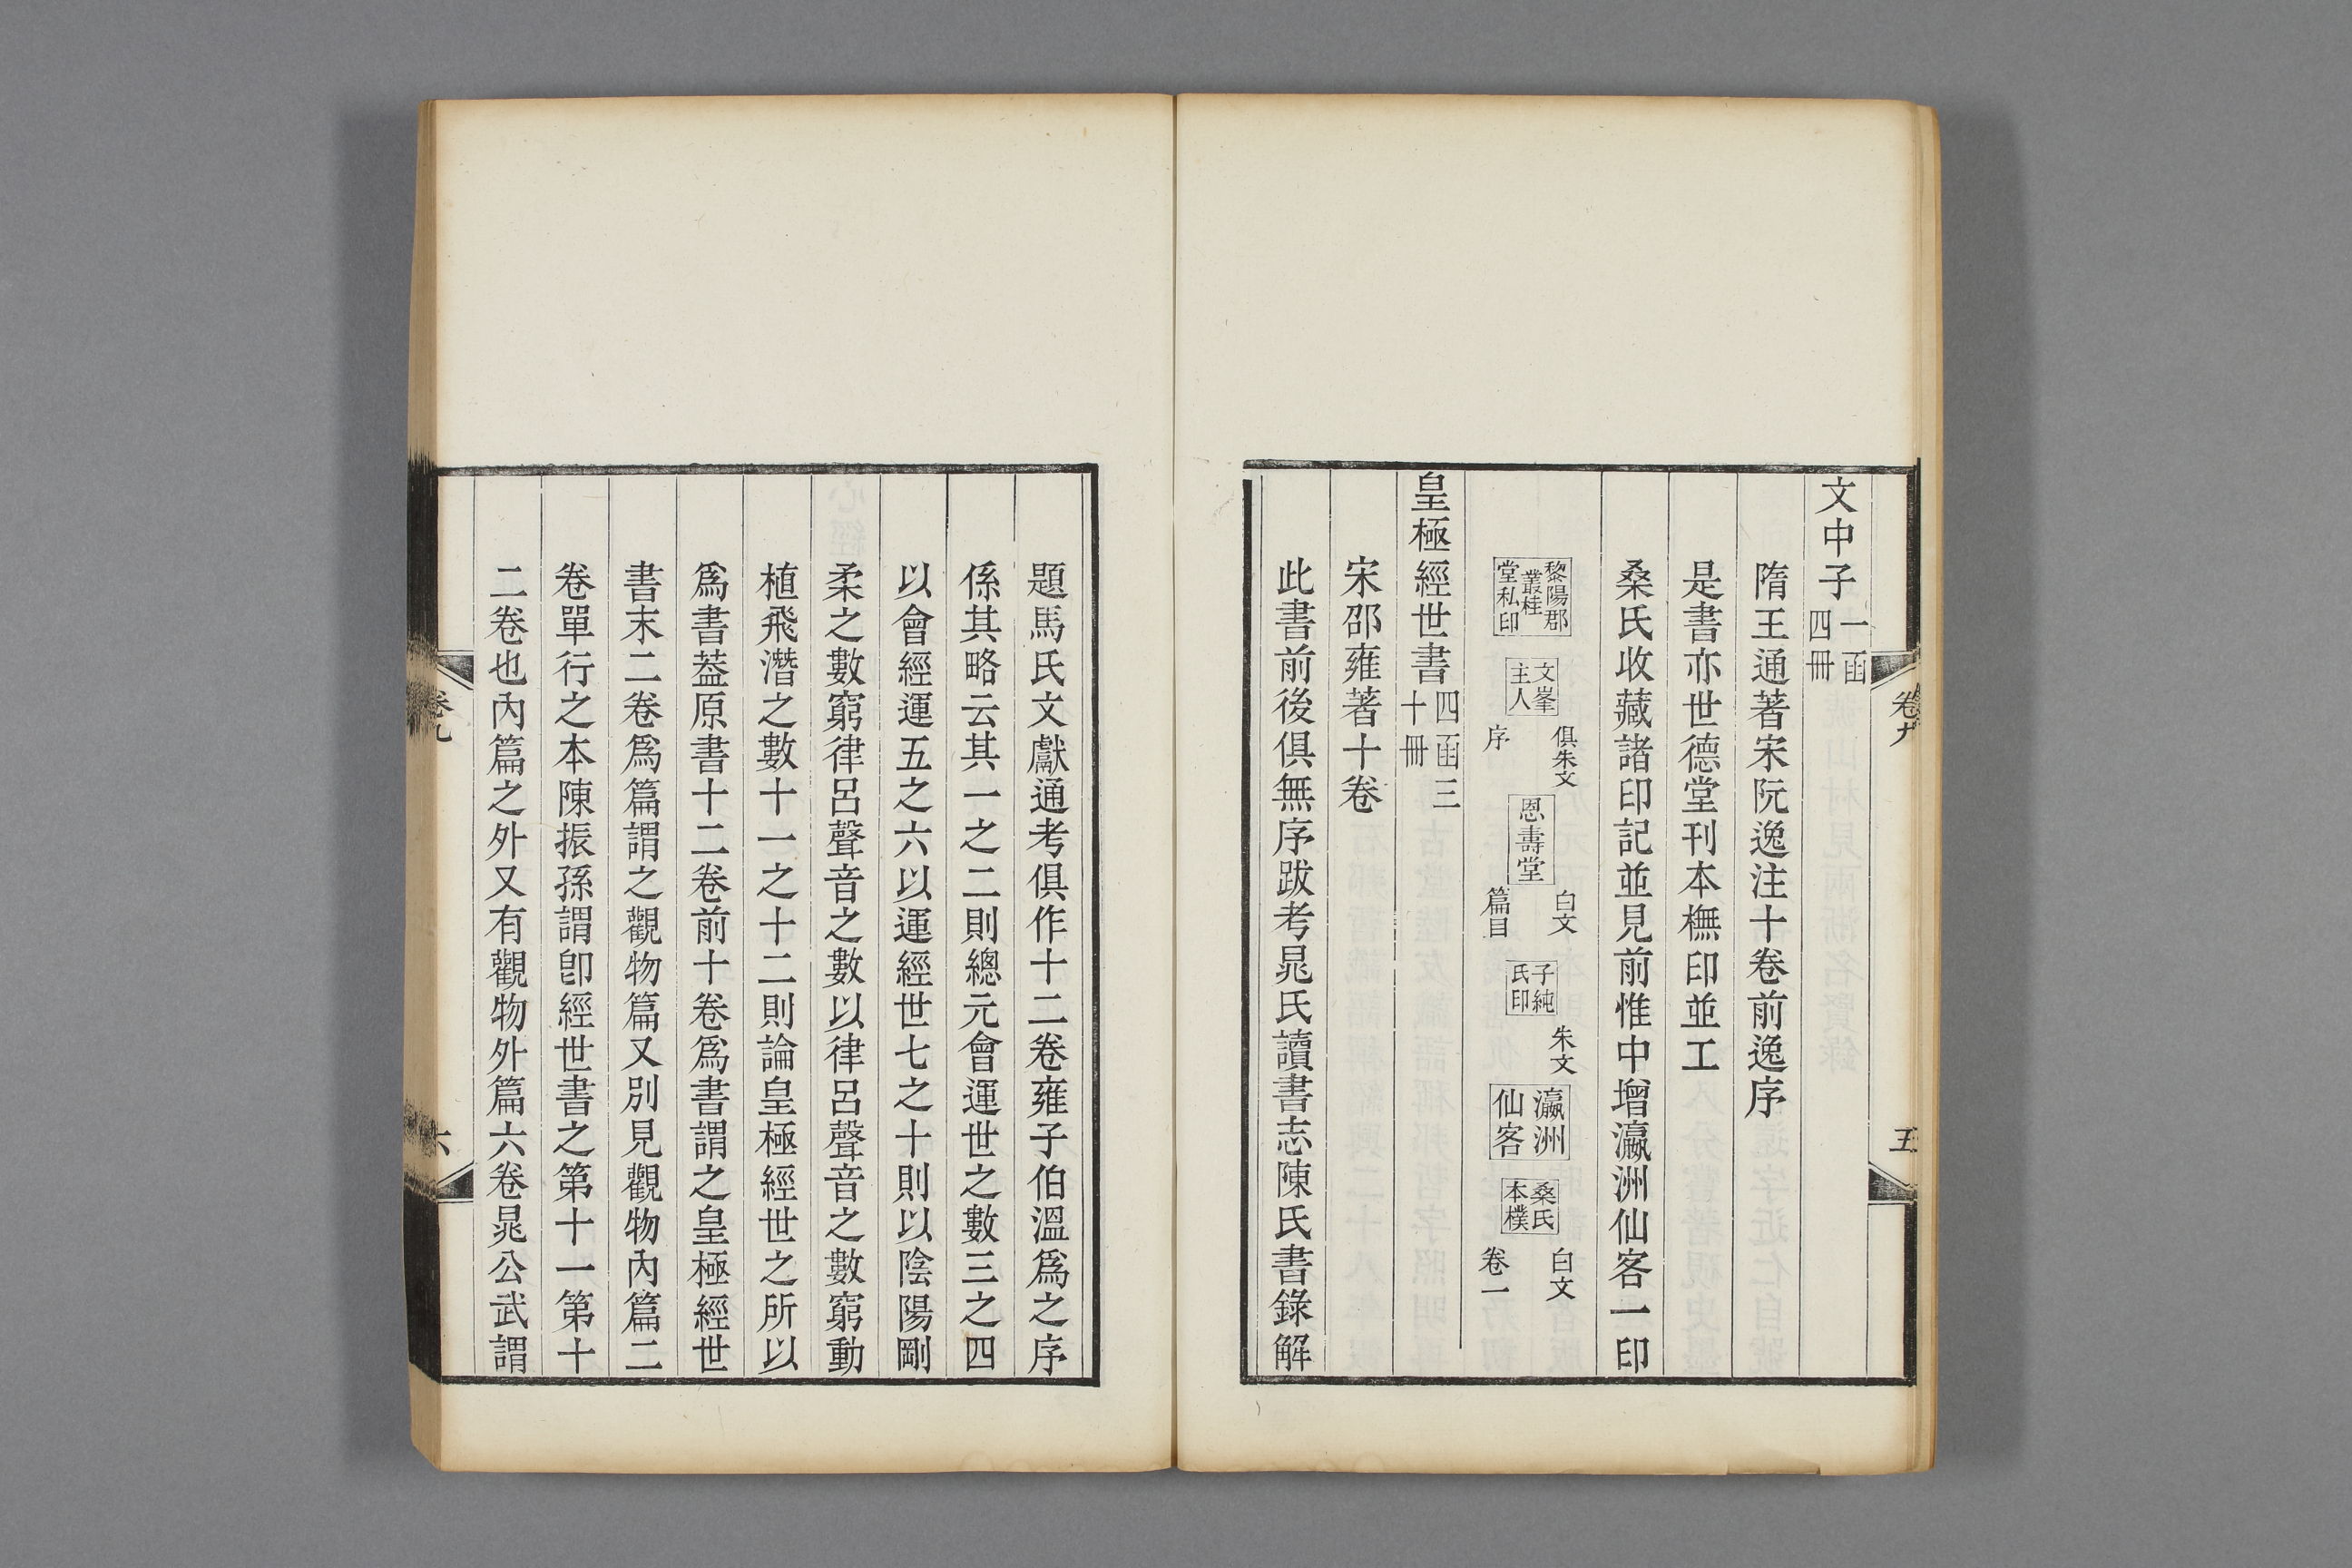 文中子一函四冊
隋王通著宋阮逸注十卷前逸序
是書亦世德堂刊本橅印並工
桑氏收藏諸印記並見前惟中增瀛洲仙客一印
黎陽郡叢桂堂私印 文峯主人 俱朱文 序 恩壽堂 白文 篇目 子純氏印 朱文 瀛洲仙客 桑氏本樸 白文 卷一
皇極經世書四函三十冊
宋邵雍著十卷
此書前後俱無序跋考晁氏讀書志陳氏書錄解
卷九 五
題馬氏文獻通考俱作十二卷雍子伯溫爲之序
係其略云其一之二則總元會運世之數三之四
以會經運五之六以運經世七之十則以陰陽剛
柔之數窮律呂聲音之數以律呂聲音之數窮動
植飛潛之數十一之十二則論皇極經世之所以
爲書葢原書十二卷前十卷爲書謂之皇極經世
書末二卷爲篇謂之觀物篇又別見觀物內篇二
卷單行之本陳振孫謂卽經世書之第十一第十
二卷也內篇之外又有觀物外篇六卷晁公武謂
卷九 六